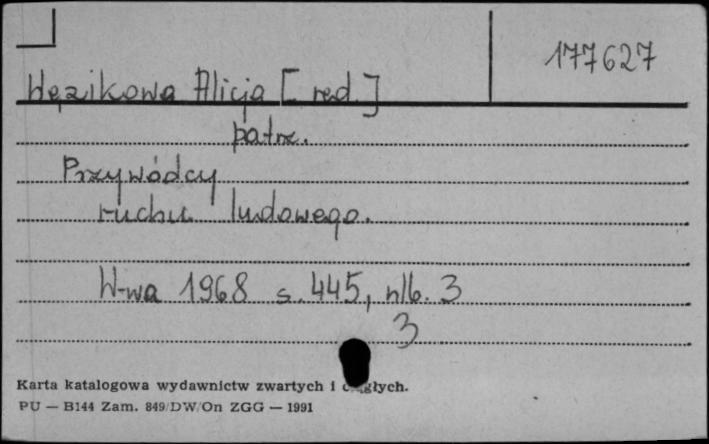 177627
Więzikowa Alicja [red.]
patrz.
Przywódcy
ruchu ludowego.
W-wa 1968 s. 445, nlb. 3
3
Karta katalogowa wydawnictw zwartych i ciągłych.
PU — B144 Zam. 849/DW/On ZGG — 1991